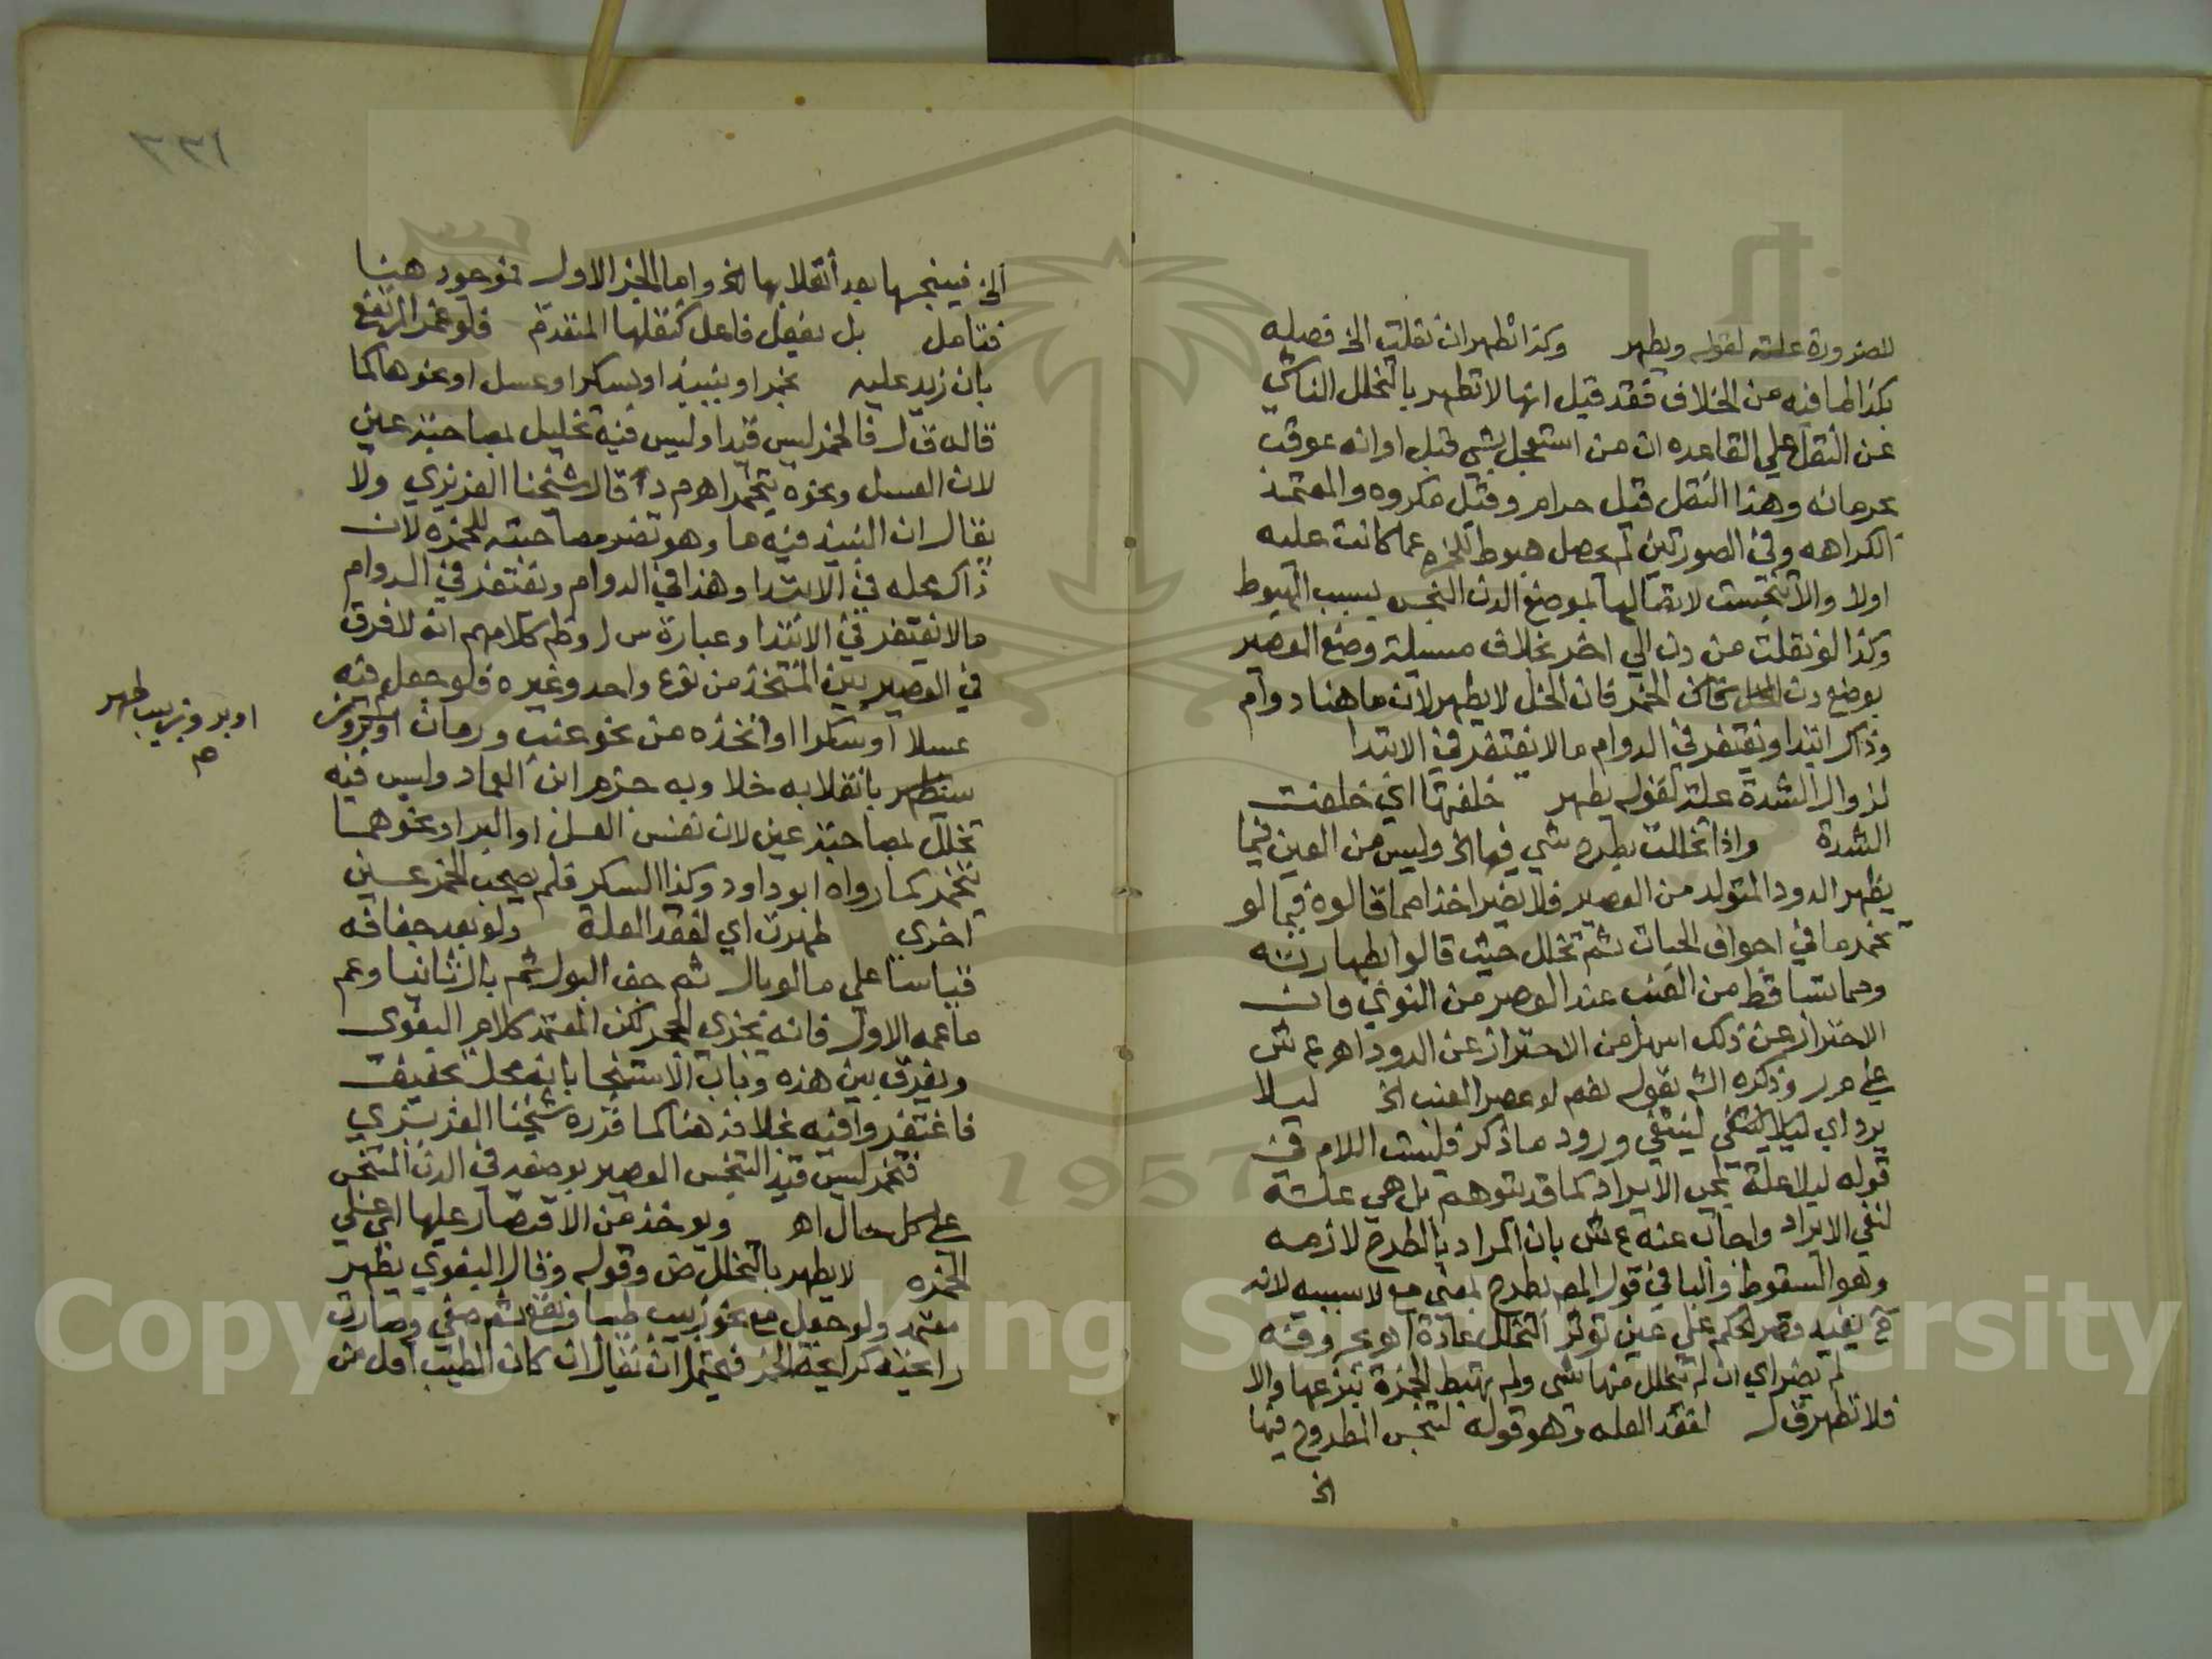 للضرورة علته لقوله ويطهر وكذا تطهر ان نقلت الخ فصله
بكذا لما فيه من الخلاف فقد قيل انها لا تطهر بالتخلل الناشي
عن النقل علي القاعده ان من استعجل بشي قبل اوانه عوقب
بحرمانه وهذا النقل قيل حرام وقيل مكروه والمعتمد
الكراهه وفي الصورتين لم يحصل هبوط للخمره عما كانت عليه
اولا والا تنجست لاتصالها بموضع الدن النجس بسبب الهبوط
وكذا لو نقلت من دن الي اخر بخلاف مسيلة وضع العصير
بوضع دن الخمر فان الخل لا يطهر لان ما هنا دوام
وذاك ابتدا ويغتفر في الدوام ما لا يغتفر في الابتدا
لزوال الشدة علة لقوله يطهر خلفتها اي خلفت
الشدة واذا تخللت بطرح شي فيها الخ وليس من العين فيما
يظهر الدود المتولد من العصير فلا يضر اخذا مما قالوه فيما لو
تخمر ما في اجواف الحبات ثم تخلل حيث قالوا بطهارته
ومما تساقط من العنب عند العصر من النوي فان
الاحتراز عن ذلك اسهل من الاحتراز عن الدود اهـ ع ش
علي م ر وذكره الش بقوله نعم لو عصر العنب الخ ليلا
يرد اي ليلا لينتفي ورود ما ذكر فليست اللام في
قوله ليلا علة للايراد كما قد يتوهم بل هي علة
لنفي الايراد واجاب عنه ع ش بان المراد بالطرح لازمه
وهو السقوط والبا في قول المص بطرح بمعني مع لا سببيه لانه
ح يفيد قصر الحكم علي عين توثر التخلل عادة اهـ بحروفه
لم يضر اي ان لم يتخلل منها شي ولم تهبط الخمرة بنزعها والا
فلا تطهر ق ل لفقد العله وهو قوله لتنجس المطروح فيها
الخ
٣٣١
الخ فينجسها بعد انقلابها الخ واما الجز الاول فموجود هنا
فتامل بل بفعل فاعل كنقلها المتقدم فلو غمر المرتفع
بان زيد عليه بخمر او بنبيذ او بسكر او عسل او نحوها كما
قاله ق ل فالخمر ليس قيدا وليس فيه تخليل بمصاحبة عين
لان العسل ونحوه يتخمر اهـ م د قال شيخنا العزيزي ولا
يقال ان النبيذ فيه ما وهو تضر مصاحبته للخمره لان
ذاك محله في الابتدا وهذا في الدوام ويغتفر في الدوام
ما لا يغتفر في الابتدا وعبارة س ل وظ كلامهم انه لا فرق
في العصير بين المتخذ من نوع واحد وغيره فلو جعل فيه
عسلا او سكرا او اتخذه من نحو عنب ورمان
اوبر وزبيب طهر
صح
بانقلابه خلا وبه جزم ابن العماد وليس فيه
تخلل بمصاحبة عين لان نفس العسل او البر او نحوهما
يتخمر كما رواه ابو داود وكذا السكر فلم يصحب الخمر عين
اخري طهرت اي لفقد العلة ولو بعد جفافه
قياسا علي ما لو بال ثم جف البول ثم بال ثانيا وعم
ما عمه الاول فانه يجزي الحجر لكن المعتمد كلام البغوي
ويفرق بين هذه وباب الاستنجا بانه محل تخفيف
فاغتفروا فيه بخلافه هنا كما قرره شيخنا العزيزي
فتخمر ليس قيد التنجس العصير بوضعه في الدن المتنجس
علي كل حال اهـ ويوخذ من الاقتصار عليها اي علي
الخمره لا يطهر بالتخلل ض وقوله وقال البغوي يطهر
معتمد ولو جعل مع نحو زبيب طيبا ونقع ثم صفي وصارت
رايحته كرايحة الخمر فيحتمل ان يقال ان كان الطيب اقل من